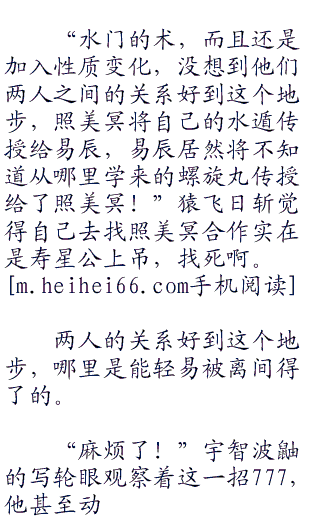 “水门的术，而且还是
加入性质变化，没想到他们
两人之间的关系好到这个地
步，照美冥将自己的水遁传
授给易辰，易辰居然将不知
道从哪里学来的螺旋丸传授
给了照美冥！”猿飞日斩觉
得自己去找照美冥合作实在
是寿星公上吊，找死啊。
[m.heihei66.com手机阅读]
两人的关系好到这个地
步，哪里是能轻易被离间得
了的。
“麻烦了！”宇智波鼬
的写轮眼观察着这一招777,
他甚至动